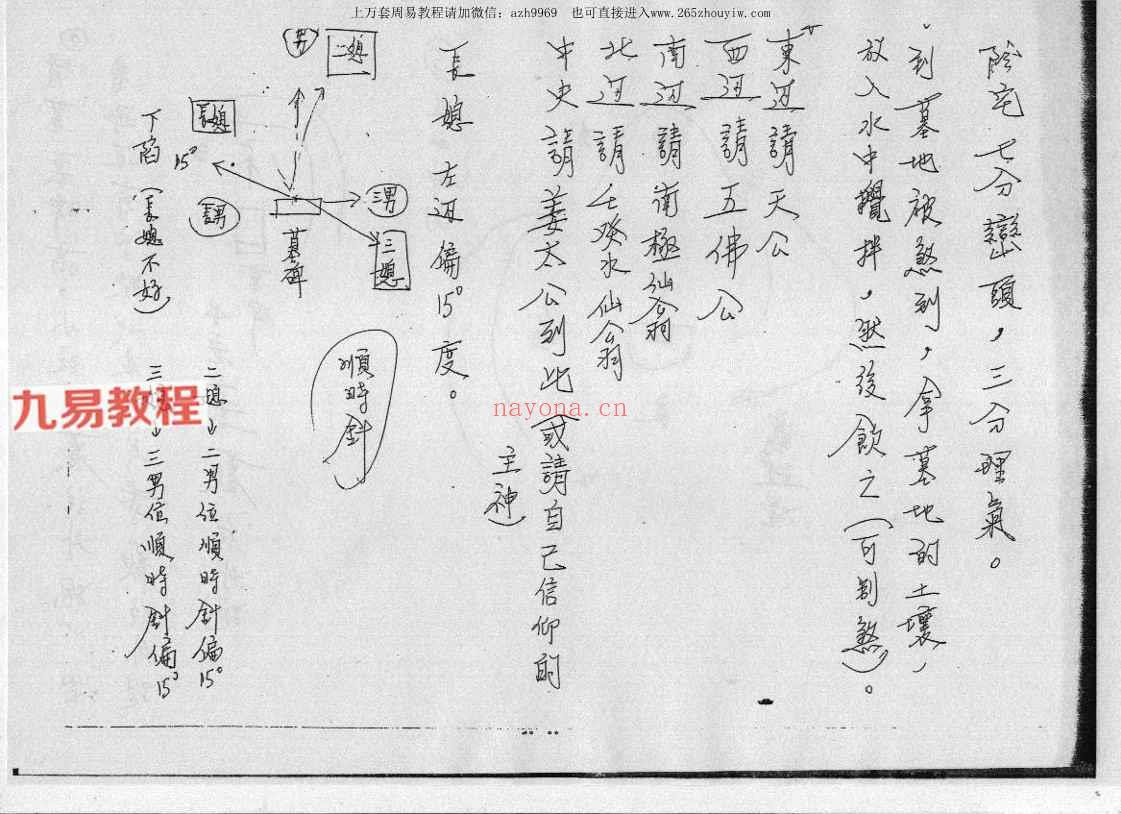 上万套周易教程请加微信：azh9969 也可直接进入www.265zhouyiw.com
陰宅七分巒頭，三分理氣。
到墓地被煞到，拿墓地的土壤，
放入水中攪拌，然後飲之（可制煞）。
東边請天公
西边請五佛公
南边請南極仙翁
北边請壬癸水仙翁
中央請姜太公到此（或請自己信仰的
主神）
長媳左边偏15°度。
順時針
二媳
三男
三媳
墓碑
長媳
15°
長男
下陷（長媳不好）
二媳→二男位順時針偏15°
三媳→三男位順時針偏15°
九易教程
nayona.cn